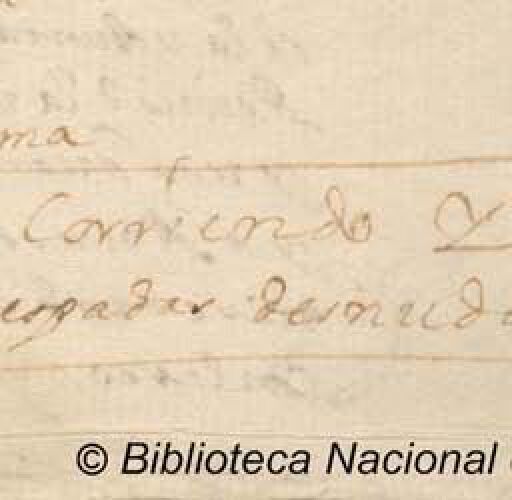 ma
Corriendo Y
espadas desnuda
© Biblioteca Nacional